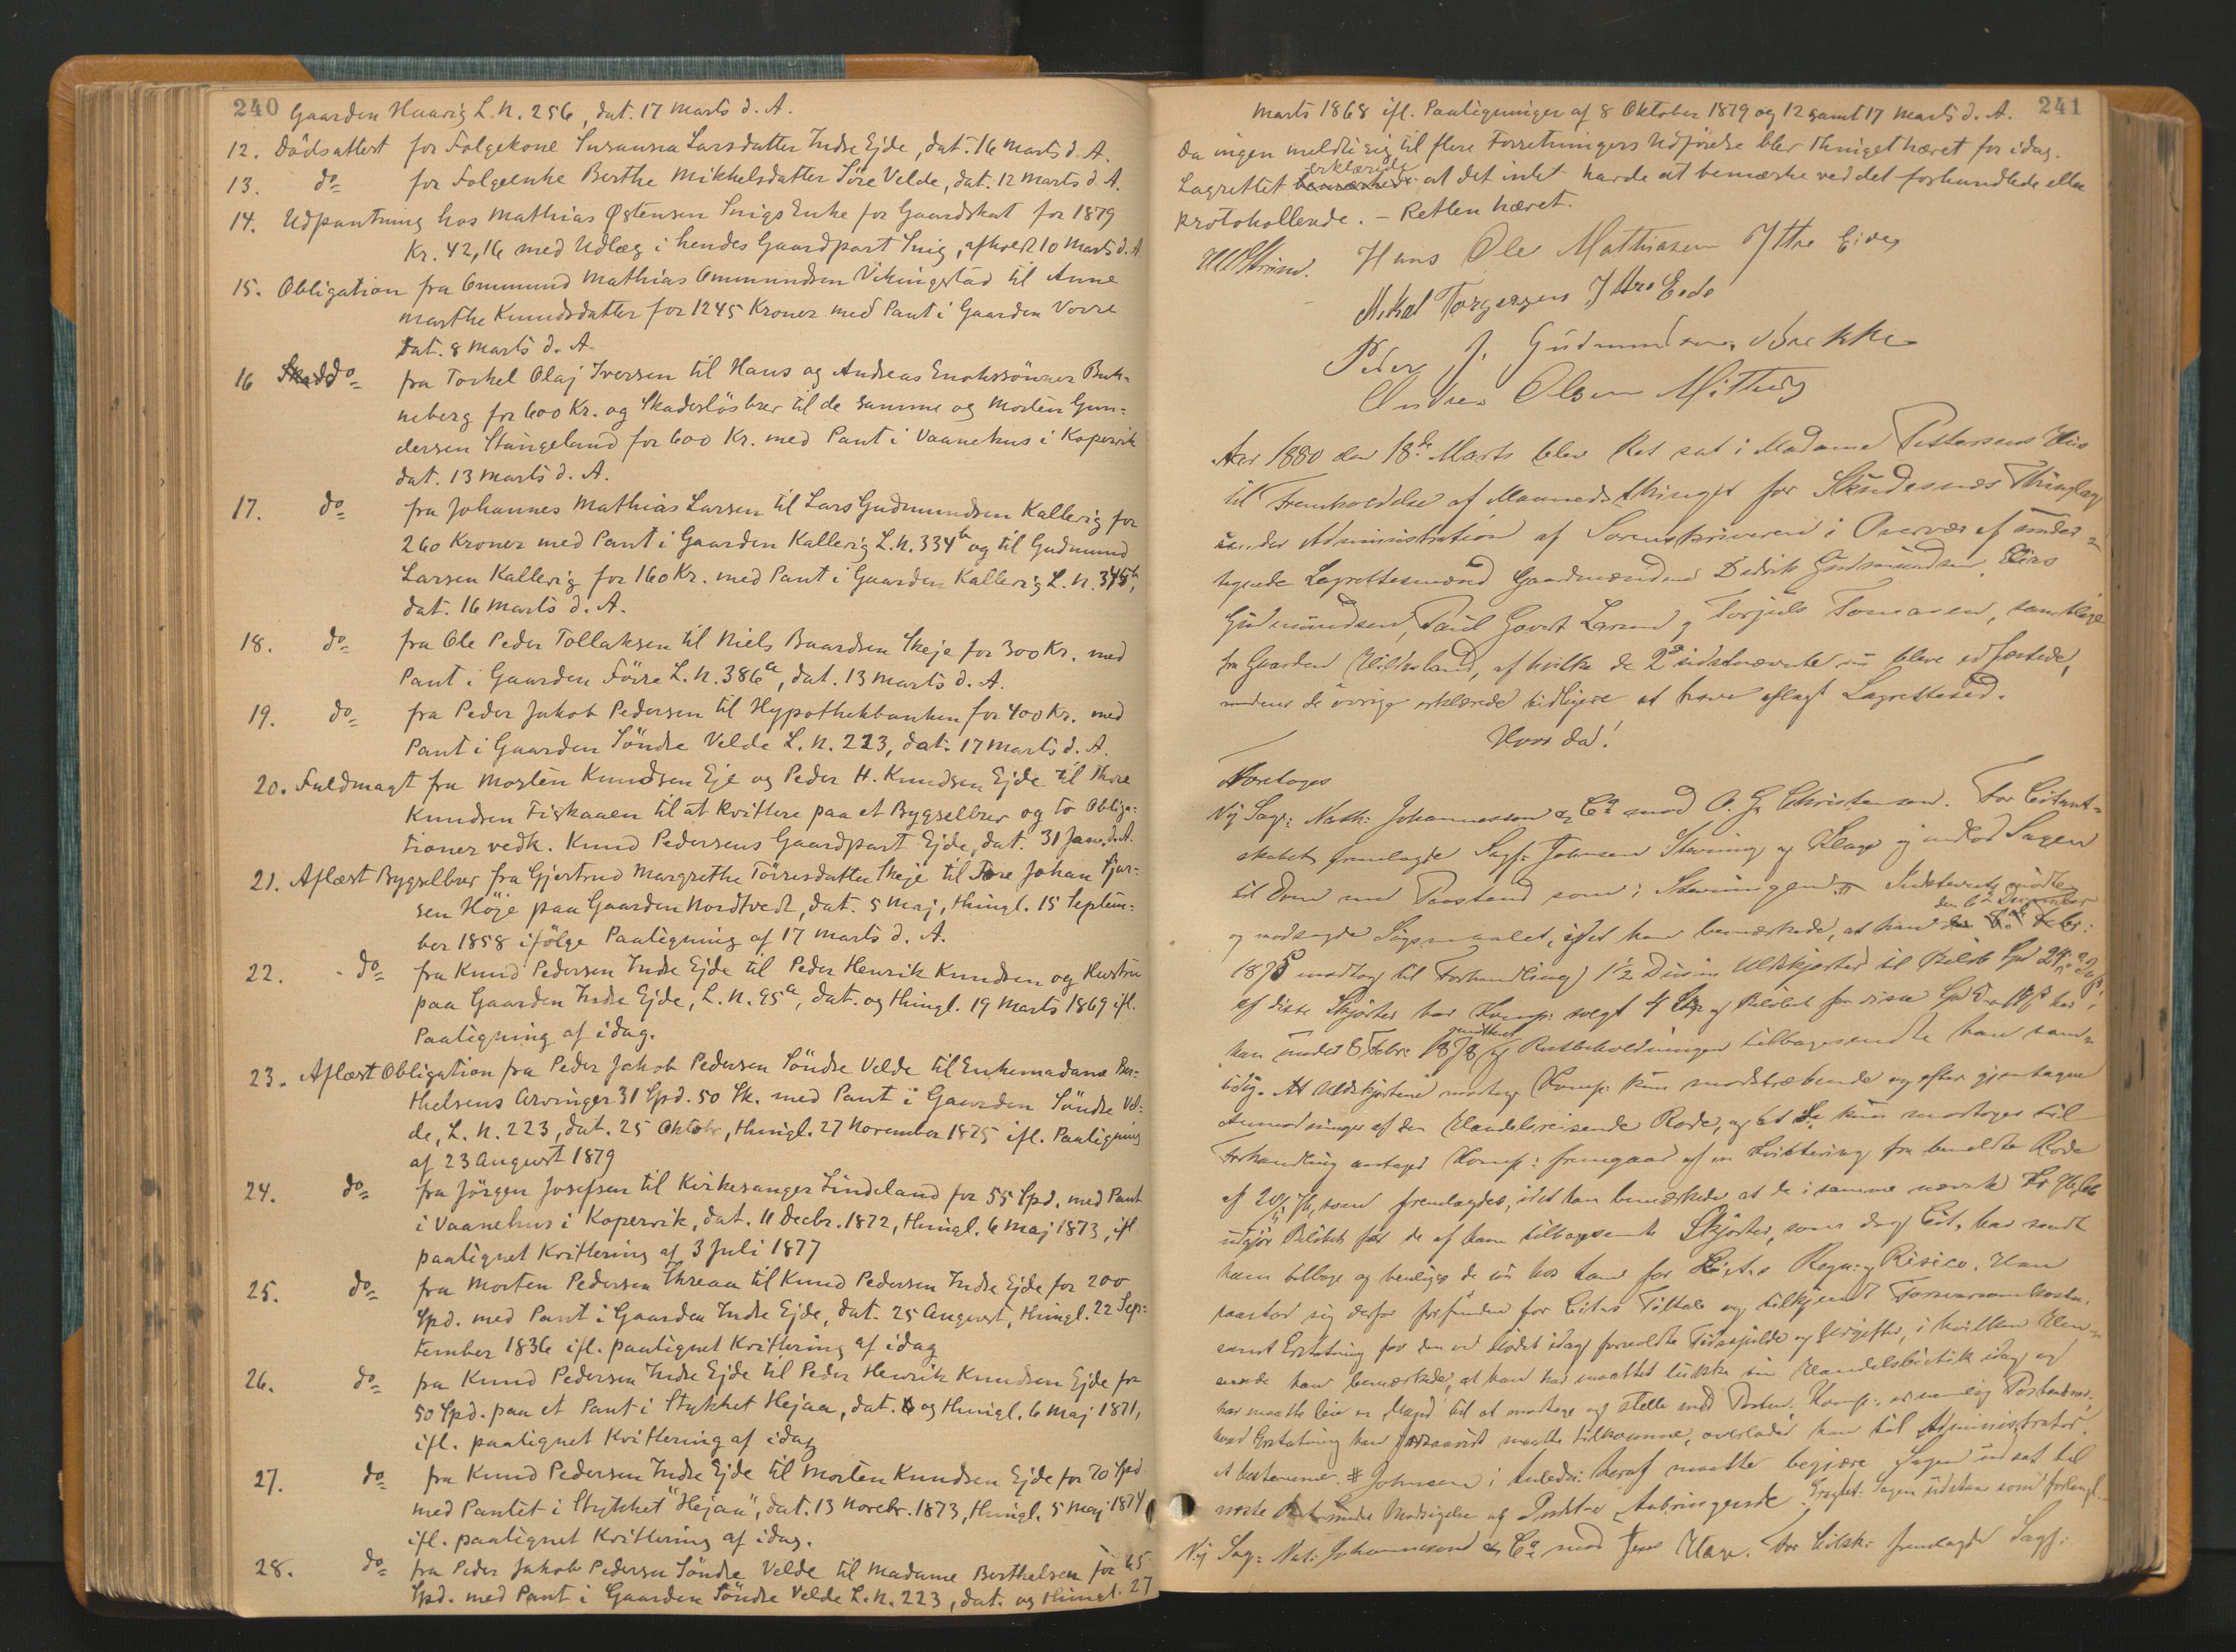 240 Gaarden Haarig L. N. 256, dat. 17 Marts d. A.
12. Dødsattest for Følgekone Susanna Larsdatter Indre Ejde, dat. 16 Marts d. A.
13. do for Følgeenke Berthe Mikkelsdatter Søre Velde, dat. 12 Marts d. A.
14. Udpantning hos Mathias Østensen Snigs Enke for Gaardskat for 1879
Kr. 42,16 med Udlæg i hendes Gaardpart Snig, afholdt 10 Marts d. A.
15. Obligation fra Ommund Mathias Ommundsen Vikingstad til Anne
Marthe Knudsdatter for 1245 Kroner med Pant i Gaarden Vorre
dat. 8 Marts d. A.
16 do fra Torkel Olaj Iversen til Hans og Andreas Enokssønner Buk-
neberg for 600 Kr. og Skadesløsbrev til de samme og Morten Gun-
dersen Stangeland for 600 Kr. med Pant i Vaanehus i Kopervik
dat. 13 Marts d. A.
17. do fra Johannes Mathias Larsen til Lars Gudmundsen Kallevig for
260 Kroner med Pant i Gaarden Kallevig L. N. 334 b og til Gudmund
Larsen Kallevig for 160 Kr. med Pant i Gaarden Kallevig L. N. 345 b,
dat. 16 Marts d. A.
18. do fra Ole Peder Tollaksen til Niels Baardsen Skeje for 300 Kr. med
Pant i Gaarden Førre L. N. 386 a, dat. 13 Marts d. A.
19. do fra Peder Jakob Pedersen til Hypothekbanken for 400 Kr. med
Pant i Gaarden Søndre Velde L. N. 223, dat. 17 Marts d. A.
20. Fuldmagt fra Morten Knudsen Eje og Peder H. Knudsen Ejde til Thore
Knudsen Fiskaaen til at kvittere paa et Bygselbrev og to Obliga-
tioner vedk. Knud Pedersens Gaardpart Ejde, dat. 31 Jan. d. A.
21. Aflæst Bygselbrev fra Gjertrud Margrethe Tørresdatter Skeje til Tore Johan
sen Høje paa Gaarden Nordtvedt, dat. 5 Maj, thingl. 15 Septem-
ber 1858 ifølge Paategning af 17 Marts d. A.
22. do fra Knud Pedersen Indre Ejde til Peder Henrik Knudsen og Hustru
paa Gaarden Indre Ejde, L. N. 95 a, dat. og thingl. 19 Marts 1869 ifl.
Paategning af idag.
23. Aflæst Obligation fra Peder Jakob Pedersen Søndre Velde til Enkemadame Ber-
thelsens Arvinger 31 Spd. 50 Sk. med Pant i Gaarden Søndre Vel-
de, L. N. 223, dat. 25 Oktobr, thingl. 27 November 1875 ifl. Paategning
af 23 August 1879
24. do fra Jørgen Josefsen til Kirkesanger Lindeland for 55 Spd. med Pant
i Vaanehus i Kopervik, dat. 11 Decbr. 1872, thingl. 6 Maj 1873, ifl
paategnet Kvittering af 3 Juli 1877
25. do fra Morten Pedersen Threaa til Knud Pedersen Indre Ejde for 200
Spd. med Pant i Gaarden Indre Ejde, dat. 25 August, thingl. 22 Sep-
tember 1836 ifl. paategnet Kvittering af idag
26. do fra Knud Pedersen Indre Ejde til Peder Henrik Knudsen Ejde for
50 Spd. paa et Pant i Stykket Hejaa, dat. og thingl. 6 Maj 1871,
ifl. paategnet Kvittering af idag
27. do fra Knud Pedersen Indre Ejde til Morten Knudsen Ejde for 70 Spd
med Pantet i Stykket "Hejaa", dat. 13 Novebr. 1873, thingl. 5 Maj 1874
ifl. paategnet Kvittering af idag.
28. do fra Peder Jakob Pedersen Søndre Velde til Madame Berthelsen for 65
Spd. med Pant i Gaarden Søndre Velde L. N. 223, dat. og thingl. 27
Marts 1868 ifl. Paategninger af 8 Oktober 1879 og 12 samt 17 Marts d. A. 241
Da ingen meldte sig til flere Forretningers Udførelse blev Thinget hævet for idag.
Lagrettet erklærede at det intet havde at bemærke ved det forhandlede eller
protokollerede. – Retten hævet.
Hans Ole Mathiasen Ittre Eide
Mikal Torgersen Ittre Eide
Peder J. Gudmundsen
Andreas Olsen
Aar 1880 den 18de Marts blev Ret sat i Madame Pettersens Hus
til Fremholdelse af Maanedsthinget for Skudesnæs Thinglag
under Administration af Sorenskriveren i Overvær af under-
tegnede Lagrettesmænd Gaardmændene Didrik Gudmundsen, Elias
Gudmundsen, Paul Govert Larsen og Torjuls Tomasen, samtlige
fra Gaarden Hillesland, af hvilke de 2de sidstnævnte nu bleve edfæstede,
medens de øvrige erklærede tidligere at have aflagt Lagrettesed.
Hvor da!
Foretoges
Ny Sag: Nath: Johannessen & Co mod O. G. Christensen. For Citant-
skabet fremlagde Sagf: Johnsen Stevning og Klage og indlod Sagen
til Dom med Paastand som i Stevningen. Indstevnte mødte
og modsagde Søgsmaalet, idet han bemærkede, at han den 6te December
1875 modtog til Forhandling 1½ Dusin Uldskjorter til Beløb Spd 24
af disse Skjorter har Komp: solgt 4 og Beløbet for disse har
han under 8 Febr: 1878 Restbeholdningen tilbagesendte han sam-
tidig. At Uldskjorterne modtog Komp: kun modstræbende og efter gjentagne
Anmodninger af den Handelsreisende Rode, og at de kun modtoges til
Forhandling Komp: fremgaar af en Kvittering fra bemeldte Rode
af som fremlagdes, idet han bemærkede at de i samme nævnte Kr
udgjør Beløbet for de af ham tilbagesendte Skjorter, som dog Cit. har sendt
ham tilbage og beroliges de nu hos ham for Cit.s Regn. og Risico. Han
paastod sig derfor frifunden for Cit.s Tiltale og tilkjendt Forsvarsomkostn.
samt Erstatning for den ved Mødet idag forvoldte Tidsspilde og Udgifter, i hvilken Hen-
seende han bemærkede, at han har maattet lukke sin Handelsbutik idag og
har maatte leie en Mand til at modtage og stelle med Posten. Komp: er nemlig
hvad Erstatning han maatte tilkomme, overlader han til Administrator
at bestemme. Johnsen i Anledn: heraf maatte begjære Sagen udsat til
næste under Modsigelse og Protektors Anbringende. Sagen udsattes som forlangt
Ny Sag: Nat: Johannesen & Co mod Jens Hage. For Citsk: fremlagde Sagf: